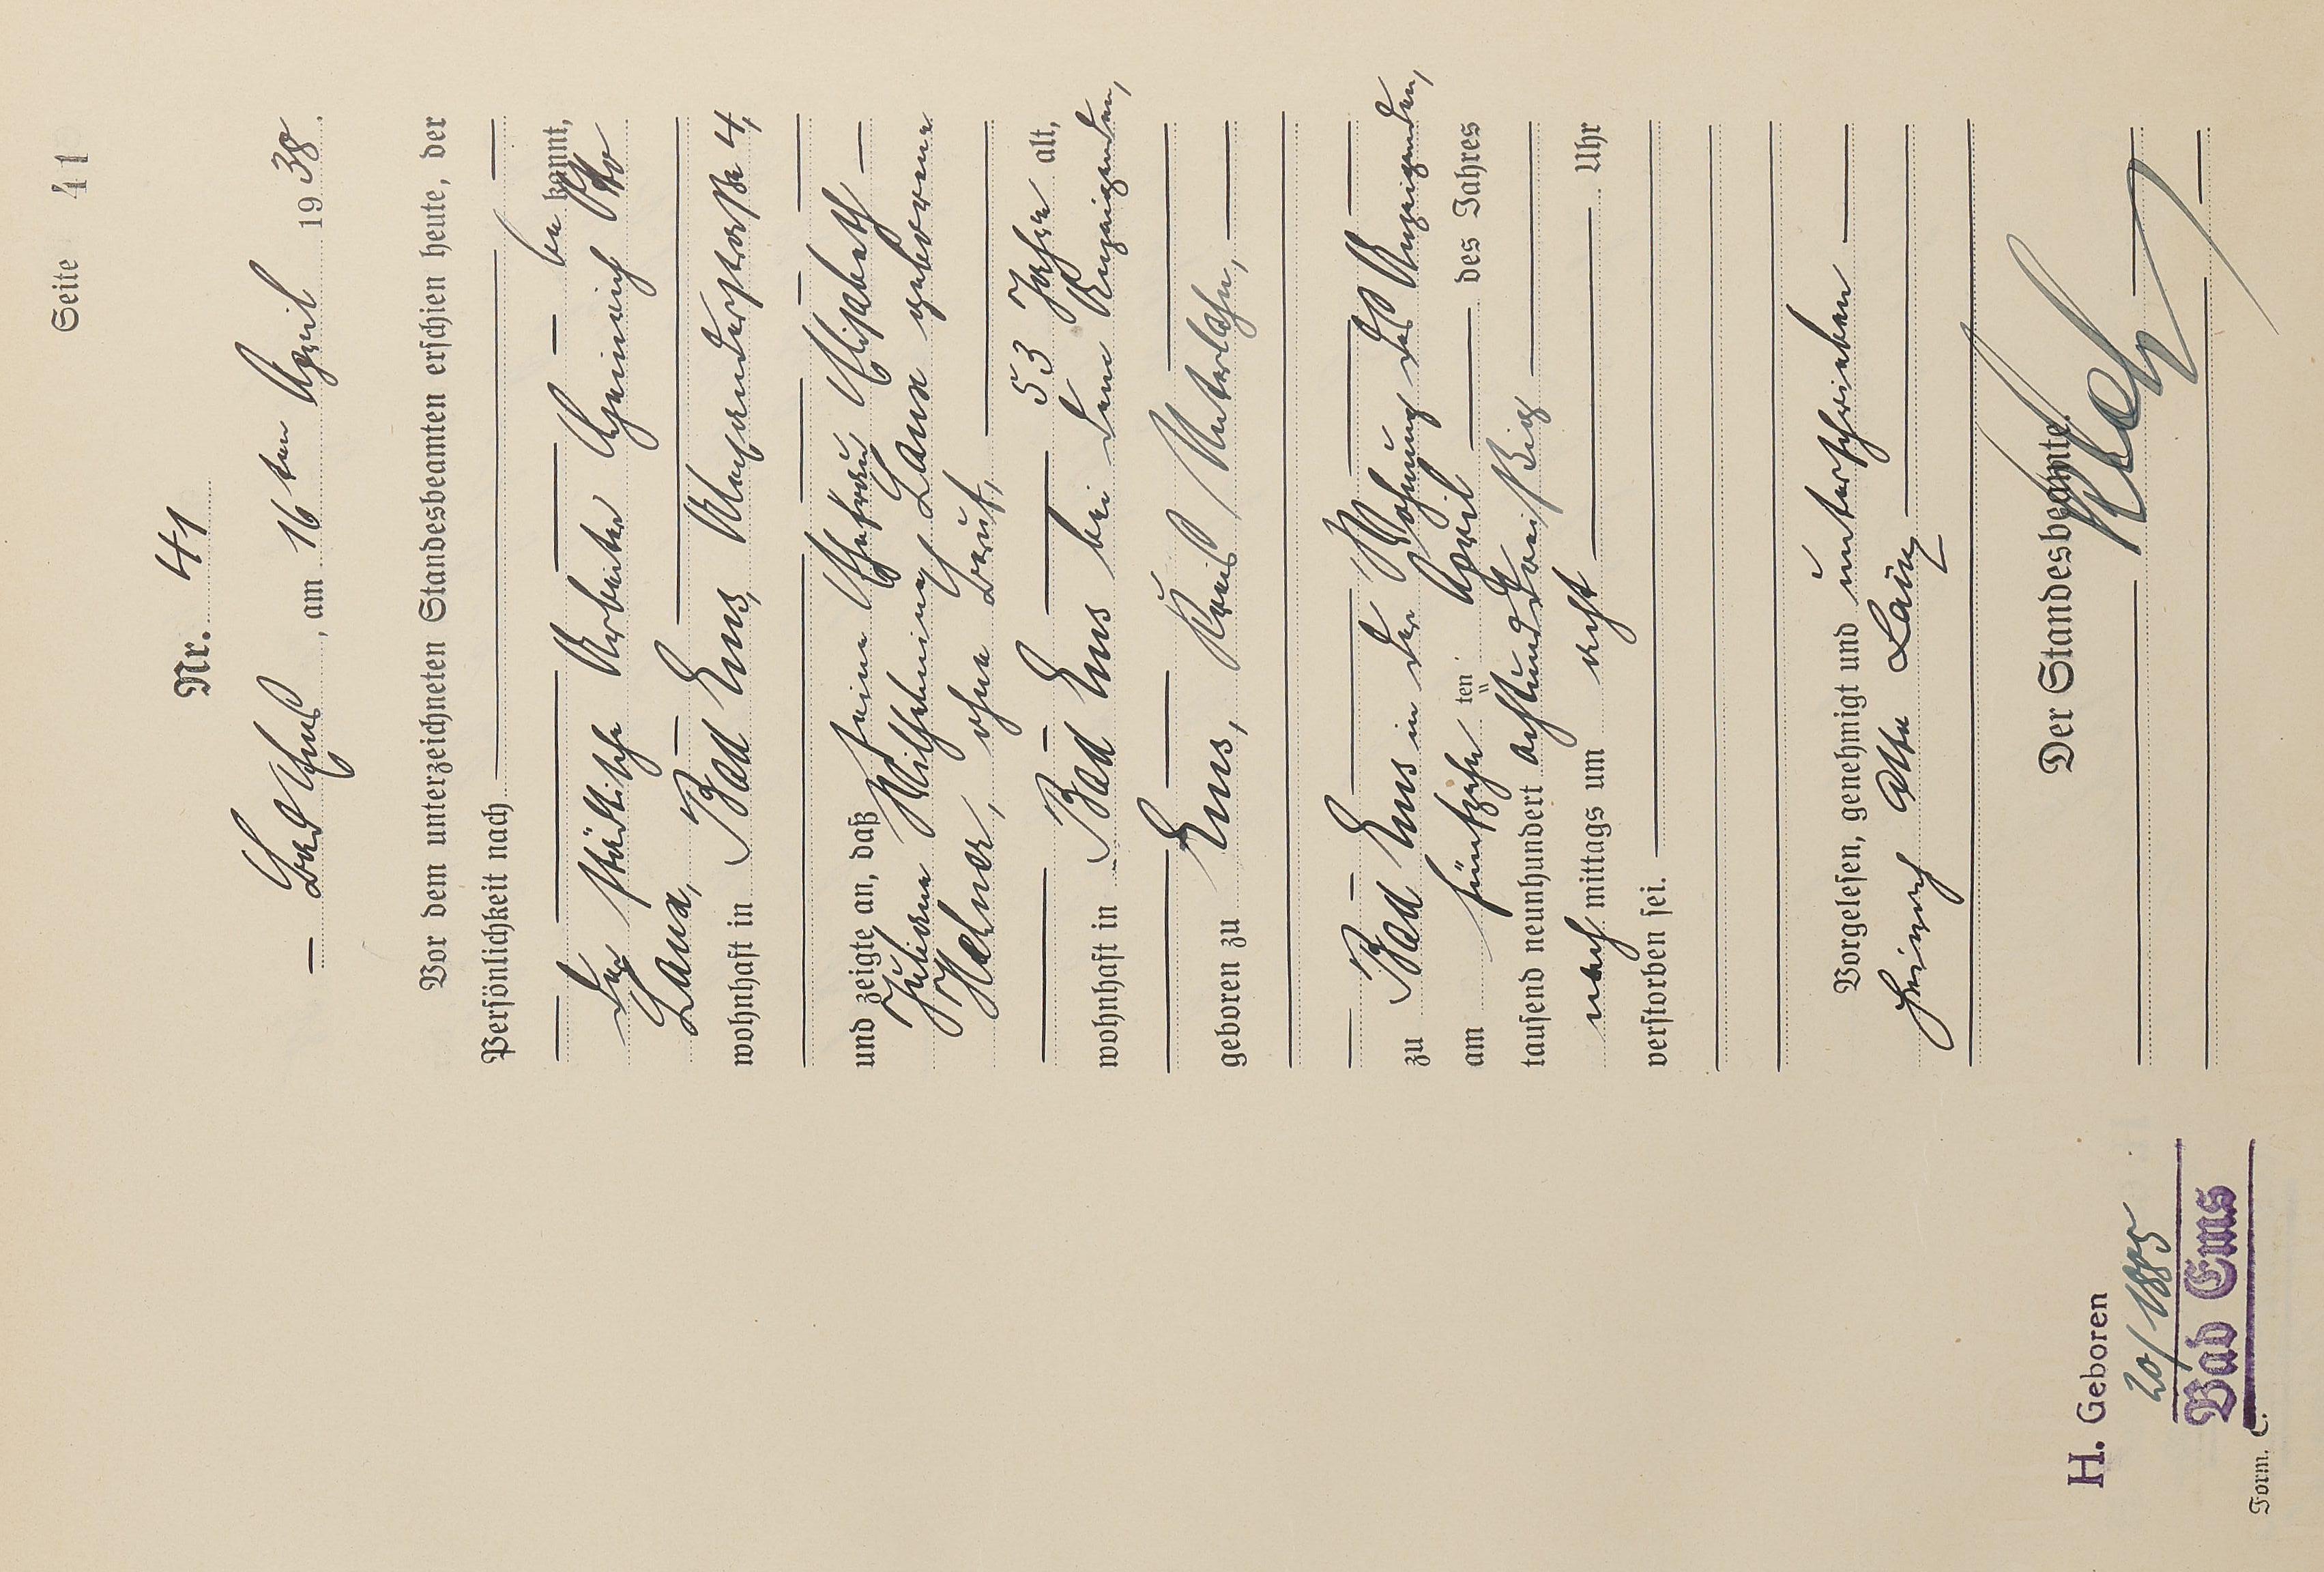 Seite 41
Nr. 41
Bad Ems, am 16ten April 1938.
Vor dem unterzeichneten Standesbeamten erschien heute, der
Persönlichkeit nach
be kannt,
der städtische Arbeiter Heinrich Otto
Laux,
wohnhaft in Bad Ems, Alexanderstraße 4,
und zeigte an, daß seine Ehefrau Elisabeth
Juliane Wilhelmine Laux geborene
Hehner, ohne Beruf,
53 Jahre alt,
wohnhaft in Bad Ems bei dem Anzeigenden,
geboren zu Ems, Kreis Unterlahn,
zu Bad Ems in der Wohnung des Anzeigenden,
am fünfzehn ten April des Jahres
tausend neunhundert achtunddreißig
nach mittags um acht Uhr
verstorben sei.
Vorgelesen, genehmigt und unterschrieben
Heinrich Otto Laux
Der Standesbeamte.
H. Geboren
20/1885
Bad Ems
Form. C.